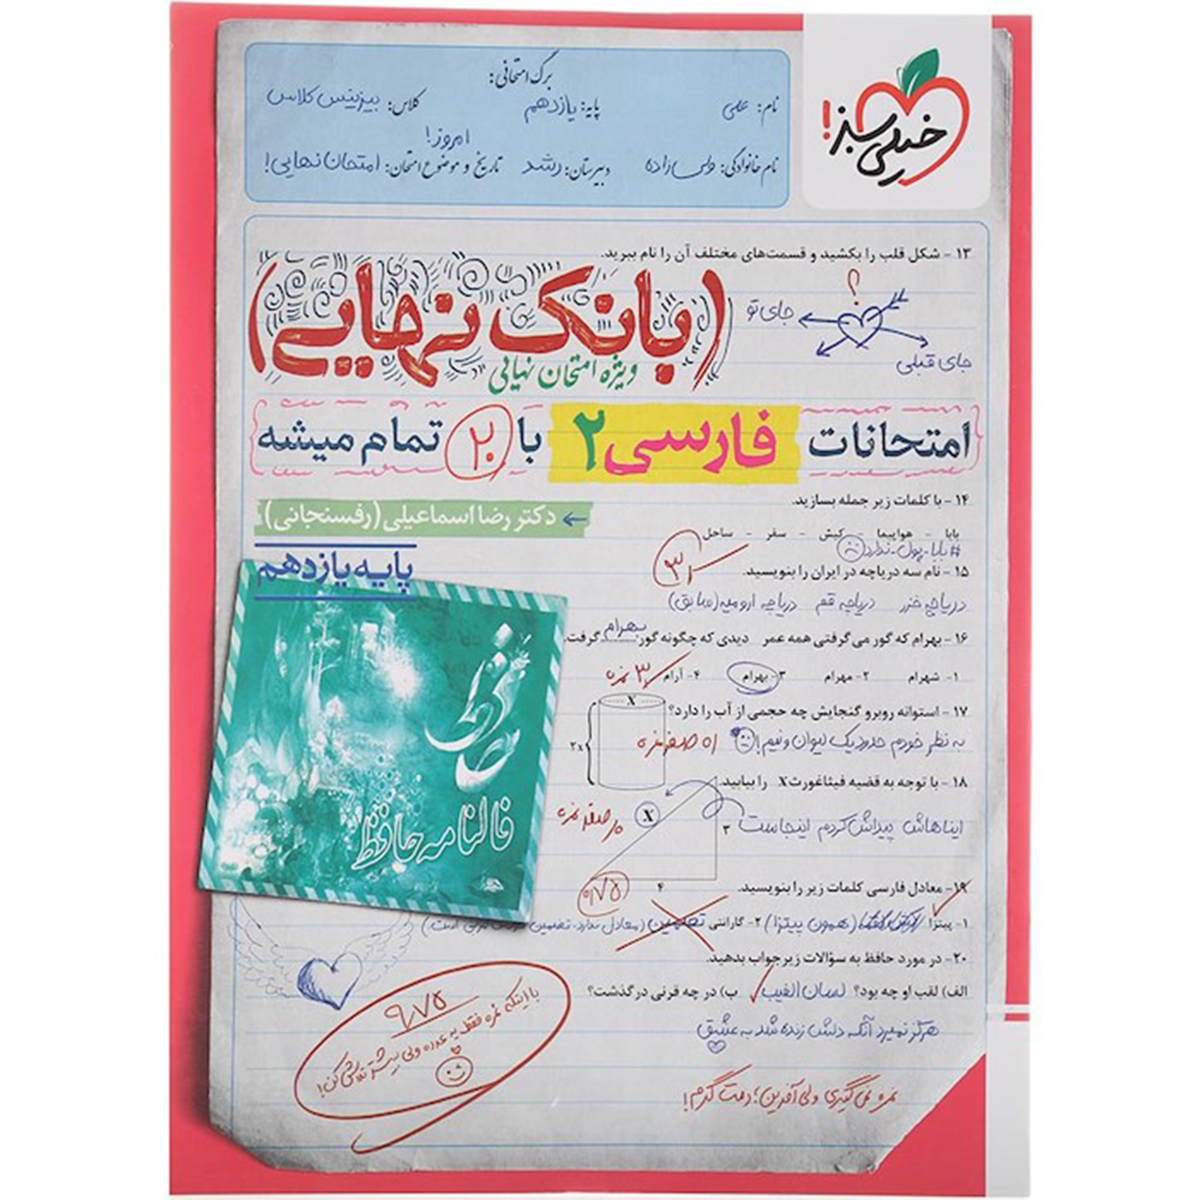 خیلی سبز!
برگ امتحانی:
نام: علی پایه: یازدهم کلاس: بیزینس کلاس
نام خانوادگی: ولی‌زاده دبیرستان: رشد تاریخ و موضوع امتحان: امروز! امتحان نهایی!
۱۳ - شکل قلب را بکشید و قسمت‌های مختلف آن را نام ببرید.
؟
جای تو
جای قبلی
(بانک نهایی)
ویژه امتحان نهایی
{امتحانات فارسی ۲ با ۲۰ تمام میشه}
۱۴ - با کلمات زیر جمله بسازید.
← دکتر رضا اسماعیلی (رفسنجانی)
بابا - هواپیما - کیش - سفر - ساحل
#بابا-پول-ندارد
پایه یازدهم
۱۵ - نام سه دریاچه در ایران را بنویسید.
دریاچه خزر دریاچه قم دریاچه ارومیه (سابق)
۱۶ - بهرام که گور می‌گرفتی همه عمر دیدی که چگونه گور بهرام گرفت.
۱- شهرام ۲- مهرام ۳- بهرام ۴- آرام
۱۷ - استوانه روبرو گنجایش چه حجمی از آب را دارد؟
X
2x
به نظر خودم حدود یک لیوان و نیم!
۱۸ - با توجه به قضیه فیثاغورث X را بیابید.
ایناهاش پیداش کردم اینجاست
X
۳
۴
حافظ
فالنامه حافظ
۱۹ - معادل فارسی کلمات زیر را بنویسید.
۰/۷۵
۱- پیتزا (همون پیتزا) ۲- گارانتی تضمین
۲۰ - در مورد حافظ به سؤالات زیر جواب بدهید.
الف) لقب او چه بود؟ لسان الغیب ب) در چه قرنی درگذشت؟
هرگز نمیرد آنکه دلش زنده شد به عشق
۹/۷۵
با اینکه نمره فقط یه عدده ولی بیشتر تلاش کن!
نمره نمی‌گیری ولی آفرین؛ دمت گرم!